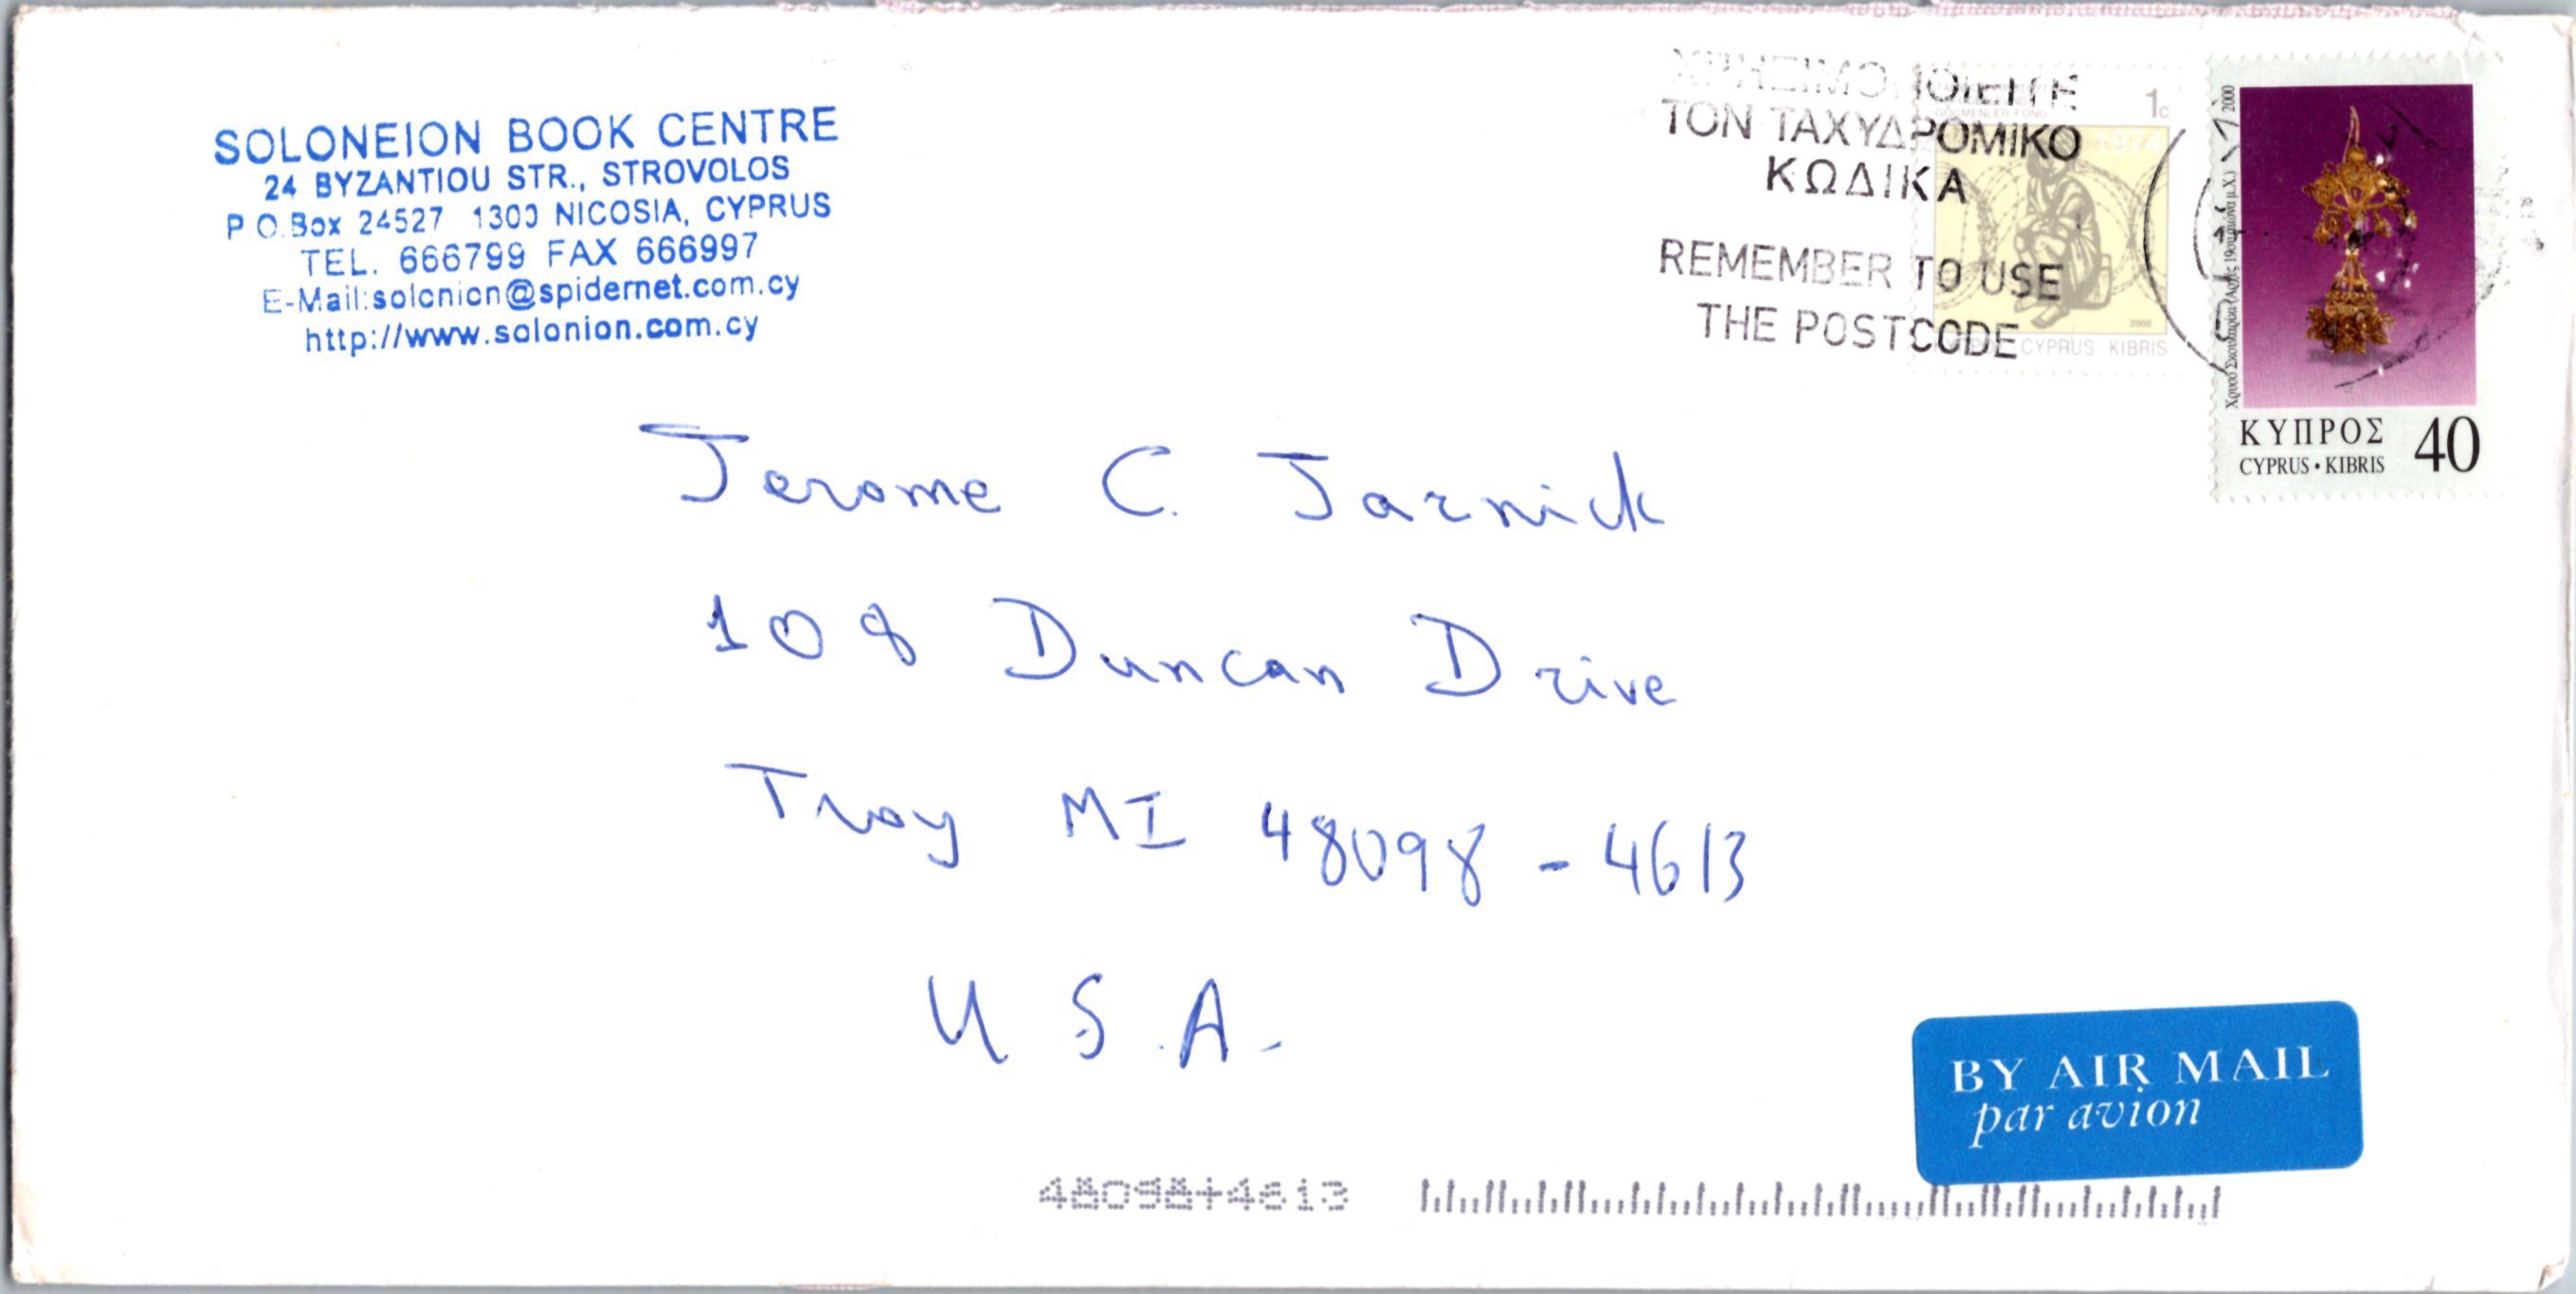 SOLONEION BOOK CENTRE
24 BYZANTIOU STR., STROVOLOS
P.O.Box 24527 1300 NICOSIA, CYPRUS
TEL. 666799 FAX 666997
E-Mail:solonion@spidernet.com.cy
http://www.solonion.com.cy
ΤΟΝ ΤΑΧΥΔΡΟΜΙΚΟ
ΚΩΔΙΚΑ
REMEMBER TO USE
THE POSTCODE
1c
1974
2000
CYPRUS · KIBRIS
2000
ΚΥΠΡΟΣ
CYPRUS • KIBRIS
40
Jerome C. Jarnick
108 Duncan Drive
Troy MI 48098 - 4613
U.S.A.
BY AIR MAIL
par avion
48098+4613